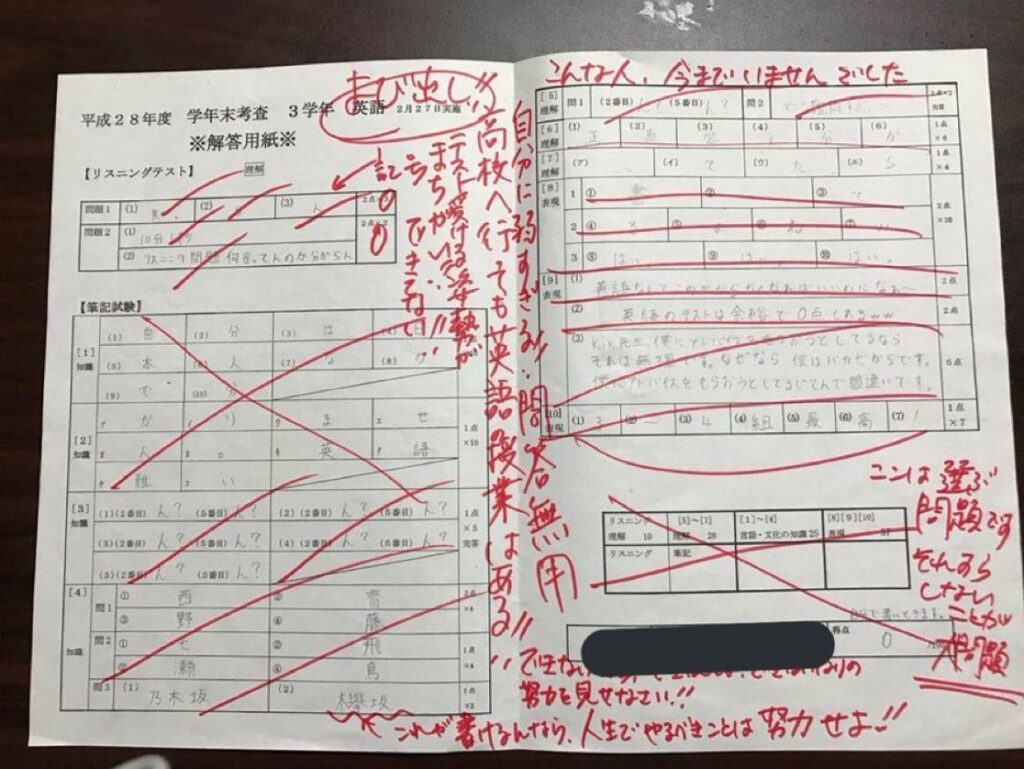 よび出し!!
平成28年度 学年末考査 3学年 英語 2月27日実施
※解答用紙※
【リスニングテスト】
理解
問題1 (1) (2) (3) ん 2点×3
0
問題2 (1) 10分より 2点×2
0
(2) リスニング問題何言ってんのか分からん
【筆記試験】
[1] 知識
(1) 自 (2) 分 (3) は (4) 日
(5) 本 (6) 人 (7) な (8) の
(9) で (10)
[2] 知識
ア か イ り ウ ま エ せ
オ ん カ 。 キ 英 ク 語
ケ 難 コ い
1点×10
[3] 知識
(1)(2番目) ん? (5番目) ん? (2)(2番目) ん? (5番目) ん?
(3)(2番目) ん? (5番目) ん? (4)(2番目) ん? (5番目) ん?
(5)(2番目) ん? (5番目) ん?
1点×5 完答
[4] 知識
問1 ① 西 ② 齊 2点×4
③ 野 ④ 藤
問2 ① 七 ② 飛 1点×4
③ 瀬 ④ 鳥
問3 (1) 乃木坂 (2) 欅坂 1点×2
記号
テスト受ける姿勢が
まちがい!!
できてない!!
高校へ行っても英語授業はある!!
自分に弱すぎる!! 問答無用
こんな人、今までいませんでした
[5] 理解 問1 (2番目) ん? (5番目) ん? 問2 2点×2 完答
[6] 理解 (1) 正 (2) (3) (4) (5) 分 (6) か 1点×6
[7] 理解 (ア) (イ) て (ウ) た (エ) ら 1点×4
[8] 表現
1 ① 書 ② ③ て
2 ④ る ⑤ よ ⑥ ね ⑦ い
3 ⑧ はい ⑨ はい。 ⑩ はい。
2点×10
[9] 表現
(1) 英語なんてこの世からなくなればいいのになぁ〜 2点
(2) 英語のテストは余裕で0点とれるww 2点
(3) Kik先生、僕にアドバイスを
それは無理です。なぜなら 僕はバカだからです。
僕にアドバイスをもらおうとしてるじてんで間違いです。
6点
[10] 表現 (1) 3 (2) ー (3) 4 (4) 組 (5) 最 (6) 高 (7) ! 1点×7
ここは選ぶ
問題です
それすら
しない
ことが
大問題
リスニング [5]〜[7] [1]〜[4] [8][9][10]
理解 10 理解 28 言語・文化の知識 25 表現 37
リスニング 筆記
自分で書いてきます。
得点 0
できない
努力を見せなさい!!
これが書けるんなら、人生でやるべきことは努力せよ!!